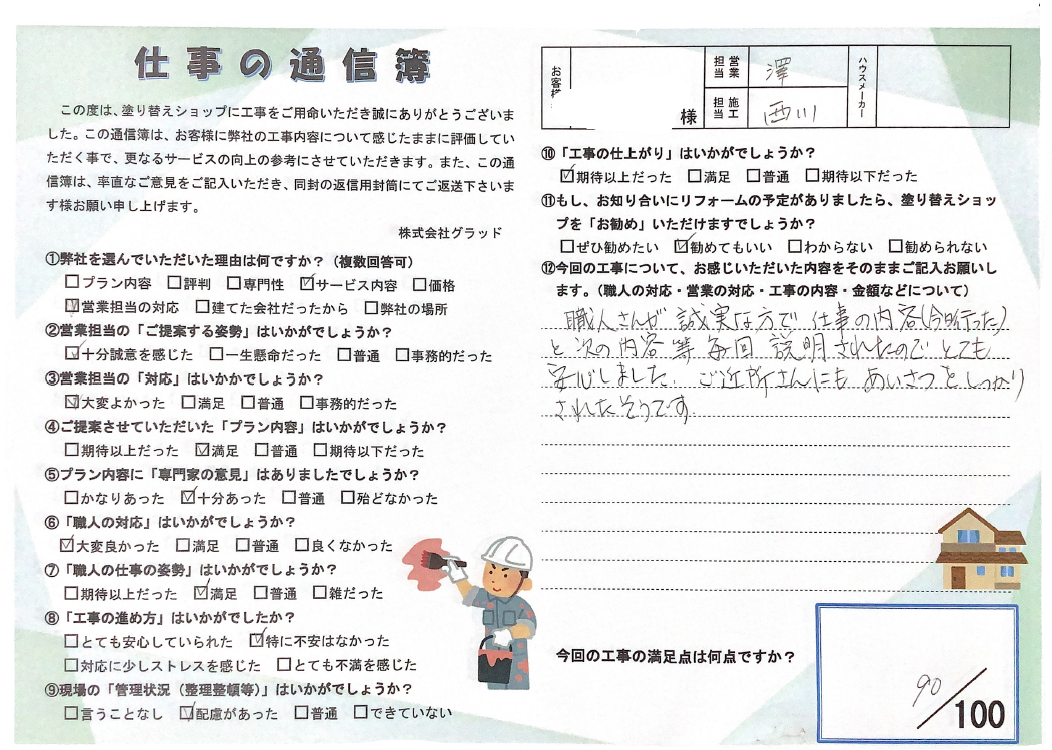 仕事の通信簿
この度は、塗り替えショップに工事をご用命いただき誠にありがとうございま
した。この通信簿は、お客様に弊社の工事内容について感じたままに評価してい
ただく事で、更なるサービスの向上の参考にさせていただきます。また、この通
信簿は、率直なご意見をご記入いただき、同封の返信用封筒にてご返送下さいま
す様お願い申し上げます。
株式会社グラッド
①弊社を選んでいただいた理由は何ですか?(複数回答可)
□プラン内容 □評判 □専門性 ☑サービス内容 □価格
☑営業担当の対応 □建てた会社だったから □弊社の場所
②営業担当の「ご提案する姿勢」はいかがでしょうか?
☑十分誠意を感じた □一生懸命だった □普通 □事務的だった
③営業担当の「対応」はいかかでしょうか?
☑大変よかった □満足 □普通 □事務的だった
④ご提案させていただいた「プラン内容」はいかがでしょうか?
□期待以上だった ☑満足 □普通 □期待以下だった
⑤プラン内容に「専門家の意見」はありましたでしょうか?
□かなりあった ☑十分あった □普通 □殆どなかった
⑥「職人の対応」はいかがでしょうか?
☑大変良かった □満足 □普通 □良くなかった
⑦「職人の仕事の姿勢」はいかがでしょうか?
□期待以上だった ☑満足 □普通 □雑だった
⑧「工事の進め方」はいかがでしたか?
□とても安心していられた ☑特に不安はなかった
□対応に少しストレスを感じた □とても不満を感じた
⑨現場の「管理状況(整理整頓等)」はいかがでしょうか?
□言うことなし ☑配慮があった □普通 □できていない
お客様
様
営業担当
澤
施工担当
西川
ハウスメーカー
⑩「工事の仕上がり」はいかがでしょうか?
☑期待以上だった □満足 □普通 □期待以下だった
⑪もし、お知り合いにリフォームの予定がありましたら、塗り替えショッ
プを「お勧め」いただけますでしょうか?
□ぜひ勧めたい ☑勧めてもいい □わからない □勧められない
⑫今回の工事について、お感じいただいた内容をそのままご記入お願いし
ます。(職人の対応・営業の対応・工事の内容・金額などについて)
職人さんが誠実な方で仕事の内容(今日行った)
と次の内容等毎回説明されたのでとても
安心しました。ご近所さんにもあいさつをしっかり
されたそうです。
今回の工事の満足点は何点ですか?
90/100